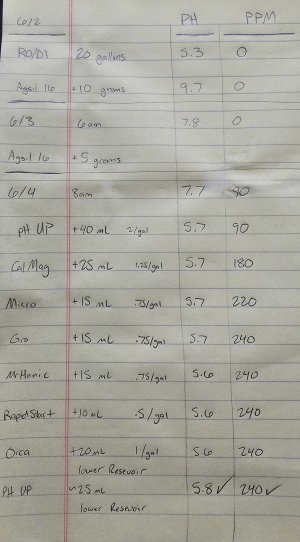 6/2 PH PPM
RO/DI 20 gallons 5.3 0
Agsil 16 +10 grams 9.7 0
6/3 6am 7.8 0
Agsil 16 +5 grams
6/4 8am 7.7 90
pH UP +40 mL 2/gal 5.7 90
Cal Mag +25 mL 1.25/gal 5.7 180
Micro +15 mL .75/gal 5.7 220
Gro +15 mL .75/gal 5.7 240
Mr Humic +15 mL .75/gal 5.6 240
Rapid Start +10 mL .5/gal 5.6 240
Orca +20 mL 1/gal 5.6 240
lower Reservoir
PH UP ~25 mL 5.8 ✓ 240 ✓
lower Reservoir